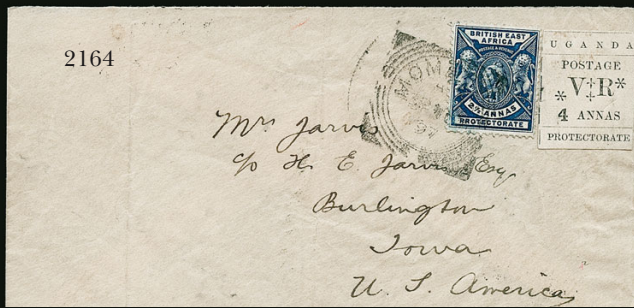 2164
BRITISH EAST
AFRICA
POSTAGE & REVENUE
2½ ANNAS
PROTECTORATE
UGANDA
POSTAGE
*V‡R*
4 ANNAS
PROTECTORATE
MOM
97
Mrs Jarvis
c/o H. E. Jarvis Esq.
Burlington
Iowa
U. S. America